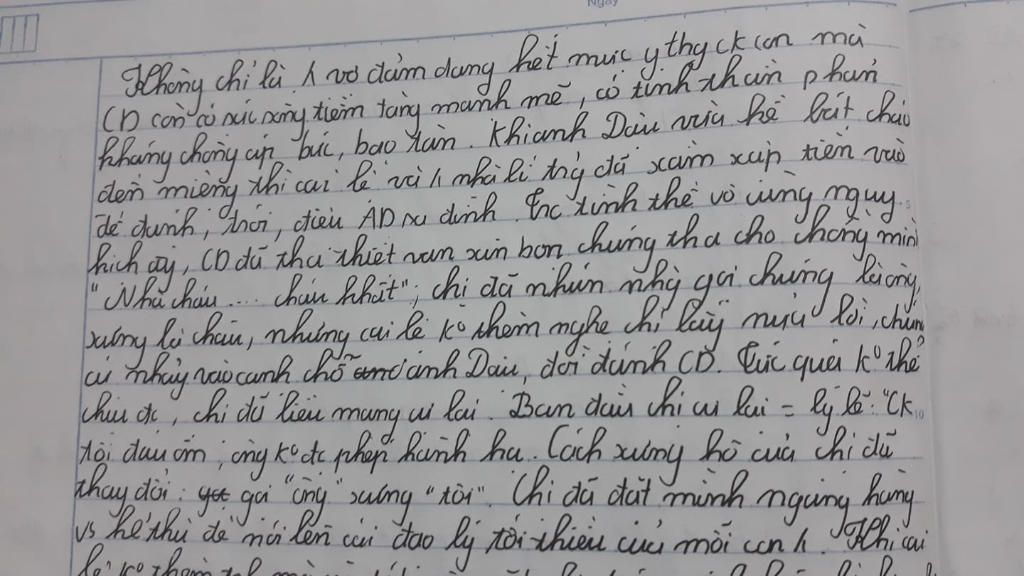 Ngày
Không chỉ là 1 vợ đảm dang hết mực y thg ck con mà
CD còn có sức sống tiềm tàng mạnh mẽ, có tinh thần phản
kháng chống áp bức, bạo tàn. Khi anh Dậu vừa kề bát cháo
đến miệng thì cai lệ và 1 nhà lí trg đã xầm xập tiến vào
để đánh, trói, điệu AD ra đình. Trc tình thế vô cùng nguy
kịch ấy, CD đã tha thiết van xin bọn chúng tha cho chồng mình
"Nhà cháu .... cháu khất"; chị đã nhún nhg gọi chúng là ông,
xưng là cháu, nhưng cai lệ k° thèm nghe chị lấy nửa lời, chúng
cứ nhảy vào cạnh chỗ anh Dậu, đòi đánh CD. Tức quá k° thể
chịu đc, chị đã liều mạng cự lại. Ban đầu chị cự lại = lý lẽ: "CK
tôi đau ốm, ông k° đc phép hành hạ. Cách xưng hô của chị đã
thay đổi: gọi "ông" xưng "tôi". Chị đã đặt mình ngang hàng
vs kẻ thù để nói lên cái đạo lý tối thiểu của mỗi con 1. Khi cai
lệ k° thèm